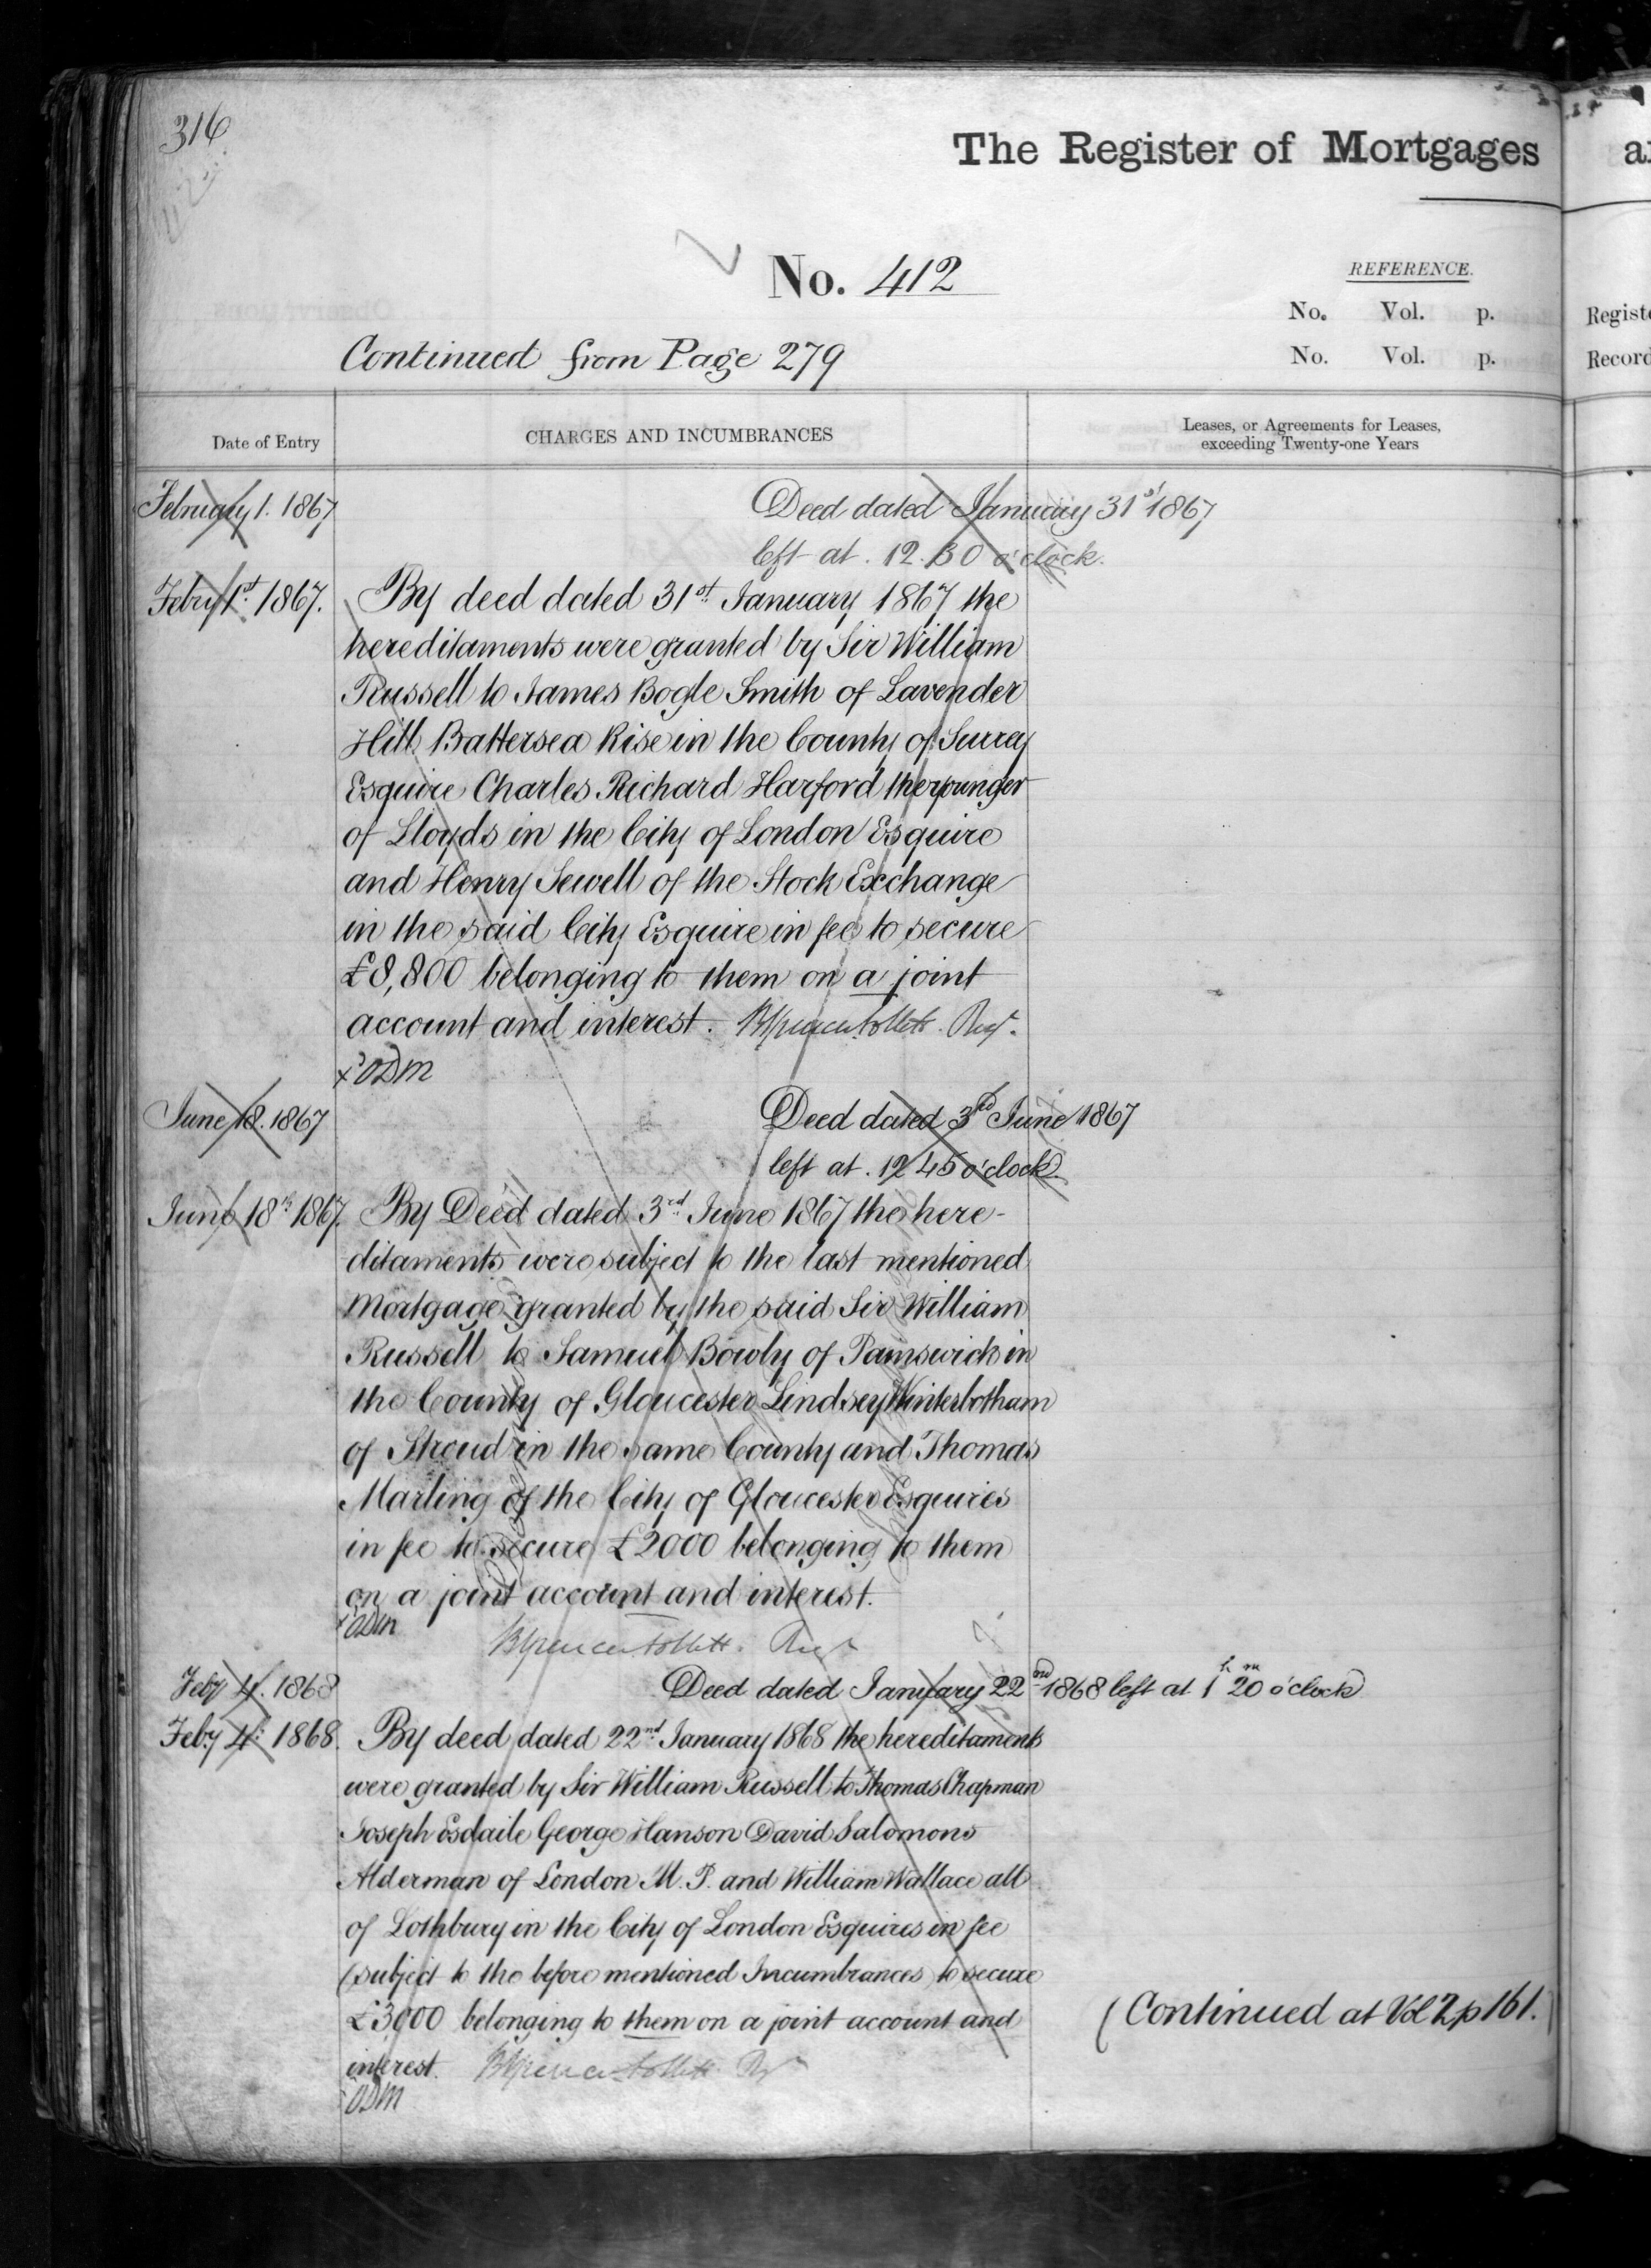 316
The Register of Mortgages
No. 412
REFERENCE.
No. Vol. p.
No. Vol. p.
Continued from Page 279
Date of Entry
CHARGES AND INCUMBRANCES
Leases, or Agreements for Leases,
exceeding Twenty-one Years
February 1. 1867
Deed dated January 31st 1867
left at. 12.30 o'clock.
Febry 1st 1867.
By deed dated 31st January 1867 the
hereditaments were granted by Sir William
Russell to James Bogle Smith of Lavender
Hill Battersea Rise in the County of Surrey
Esquire Charles Richard Harford the younger
of Lloyds in the City of London Esquire
and Henry Sewell of the Stock Exchange
in the said City Esquire in fee to secure
£8,800 belonging to them on a joint
account and interest.
x ODM
June 18. 1867
Deed dated 3rd June 1867
left at. 12 45 o'clock.
June 18th 1867.
By Deed dated 3rd June 1867 the here-
ditaments were subject to the last mentioned
Mortgage granted by the said Sir William
Russell to Samuel Bowly of Painswick in
the County of Gloucester Lindsey Winterbotham
of Stroud in the same County and Thomas
Marling of the City of Gloucester Esquires
in fee to secure £2000 belonging to them
on a joint account and interest.
x ODM
Feby 4. 1868
Deed dated January 22nd 1868 left at 1h 20m o'clock
Feby 4: 1868.
By deed dated 22nd January 1868 the hereditaments
were granted by Sir William Russell to Thomas Chapman
Joseph Esdaile George Hanson David Salomons
Alderman of London M.P. and William Wallace all
of Lothbury in the City of London Esquires in fee
(subject to the before mentioned Incumbrances) to secure
£3,000 belonging to them on a joint account and
interest.
ODM
(Continued at Vol 2 p 161.)
a
Regist
Record